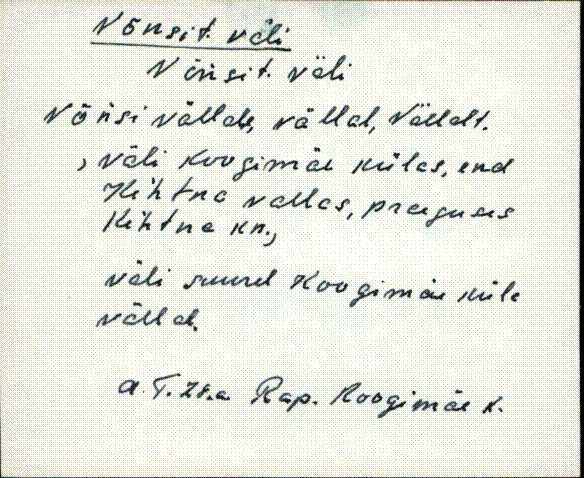 Võnsit väli
Võńsit väli
Võńsi vällale, vällal, vällalt.
, väli Koogimäe külas, end
Kehtna vallas, praeguses
Kehtna kn.,
väli suurel Koogimäe küla
vällal.
Rap. Koogimäe k.